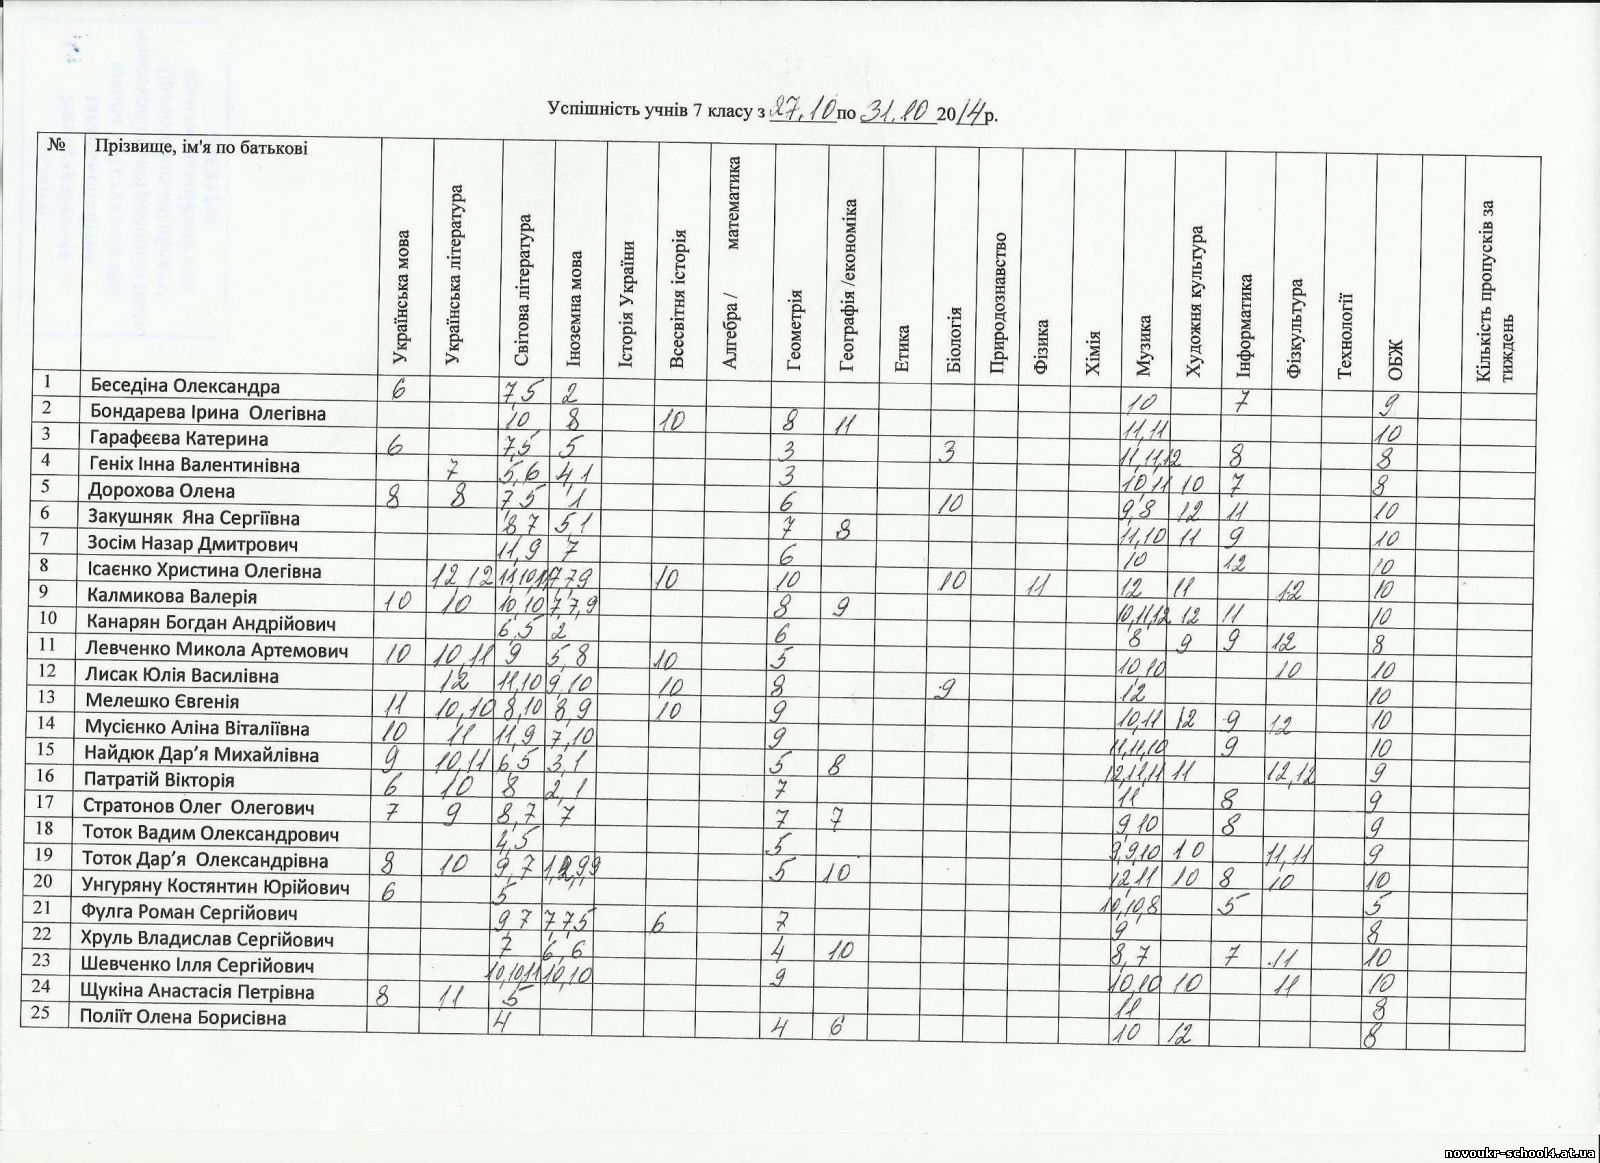 Успішність учнів 7 класу з 27.10 по 31.10 2014р.
№ Прізвище, ім'я по батькові Українська мова Українська література Світова література Іноземна мова Історія України Всесвітня історія Алгебра / математика Геометрія Географія /економіка Етика Біологія Природознавство Фізика Хімія Музика Художня культура Інформатика Фізкультура Технології ОБЖ Кількість пропусків за тиждень
1 Беседіна Олександра 6 7,5 2 10 7 9
2 Бондарева Ірина Олегівна 10 8 10 8 11 11,11 10
3 Гарафєєва Катерина 6 7,5 5 3 3 11,11,12 8 8
4 Геніх Інна Валентинівна 7 5,6 4,1 3 10,11 10 7 8
5 Дорохова Олена 8 8 7,5 1 6 10 9,8 12 11 10
6 Закушняк Яна Сергіївна 8,7 5,1 7 8 11,10 11 9 10
7 Зосім Назар Дмитрович 11,9 7 6 10 12 10
8 Ісаєнко Христина Олегівна 12 12 11,10,11 7,7,9 10 10 10 11 12 11 12 10
9 Калмикова Валерія 10 10 10,10 7,7,9 8 9 10,11,12 12 11 10
10 Канарян Богдан Андрійович 6,5 2 6 8 9 9 12 8
11 Левченко Микола Артемович 10 10,11 9 5,8 10 5 10,10 10 10
12 Лисак Юлія Василівна 12 11,10 9,10 10 8 9 12 10
13 Мелешко Євгенія 11 10,10 8,10 8,9 10 9 10,11 12 9 12 10
14 Мусієнко Аліна Віталіївна 10 11 11,9 7,10 9 11,11,10 9 10
15 Найдюк Дар’я Михайлівна 9 10,11 6,5 3,1 5 8 12,11,11 11 12,12 9
16 Патратій Вікторія 6 10 8 2,1 7 11 8 9
17 Стратонов Олег Олегович 7 9 8,7 7 7 7 9,10 8 9
18 Тоток Вадим Олександрович 4,5 5 9,9,10 10 11,11 9
19 Тоток Дар’я Олександрівна 8 10 9,7 5 10 12,11 10 8 10 10
20 Унгуряну Костянтин Юрійович 6 5 10,10,8 5 5
21 Фулга Роман Сергійович 9,7 7,7,5 6 7 9 8
22 Хруль Владислав Сергійович 7 6,6 4 10 8,7 7 11 10
23 Шевченко Ілля Сергійович 10,10,11 10,10 9 10,10 10 11 10
24 Щукіна Анастасія Петрівна 8 11 5 11 8
25 Поліїт Олена Борисівна 4 4 6 10 12 8
novoukr-school4.at.ua